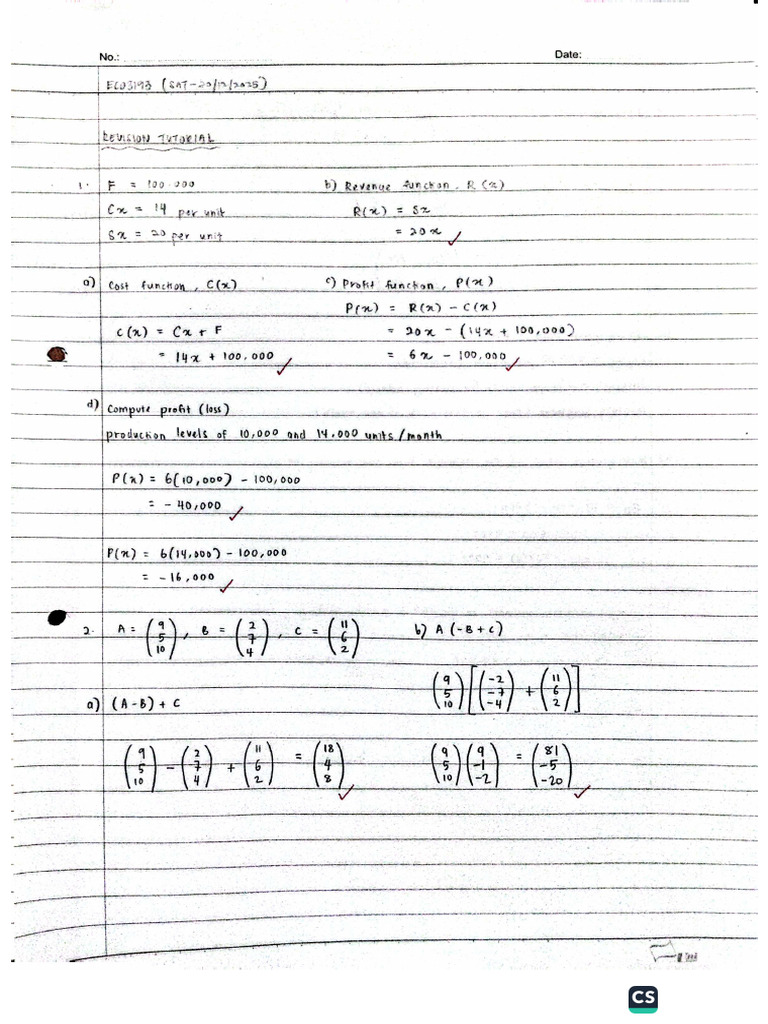 No.:
Date:
ECO3193 (SAT-20/12/2025)
REVISION TUTORIAL
1. F = 100.000
Cx = 14 per unit
Sx = 20 per unit
b) Revenue function, R(x)
R(x) = Sx
= 20x ✓
a) Cost function, C(x)
C(x) = Cx + F
= 14x + 100.000 ✓
c) Profit function, P(x)
P(x) = R(x) - C(x)
= 20x - (14x + 100,000)
= 6x - 100,000 ✓
d) Compute profit (loss)
production levels of 10,000 and 14.000 units/month
P(x) = 6(10,000) - 100,000
= - 40,000 ✓
P(x) = 6(14,000) - 100,000
= -16,000 ✓
2. A = (9 5 10), B = (2 7 4), C = (11 6 2)
a) (A-B) + C
(9 5 10) - (2 7 4) + (11 6 2) = (18 4 8) ✓
b) A (-B + C)
(9 5 10) [(-2 -7 -4) + (11 6 2)]
(9 5 10) (9 -1 -2) = (81 -5 -20) ✓
CS